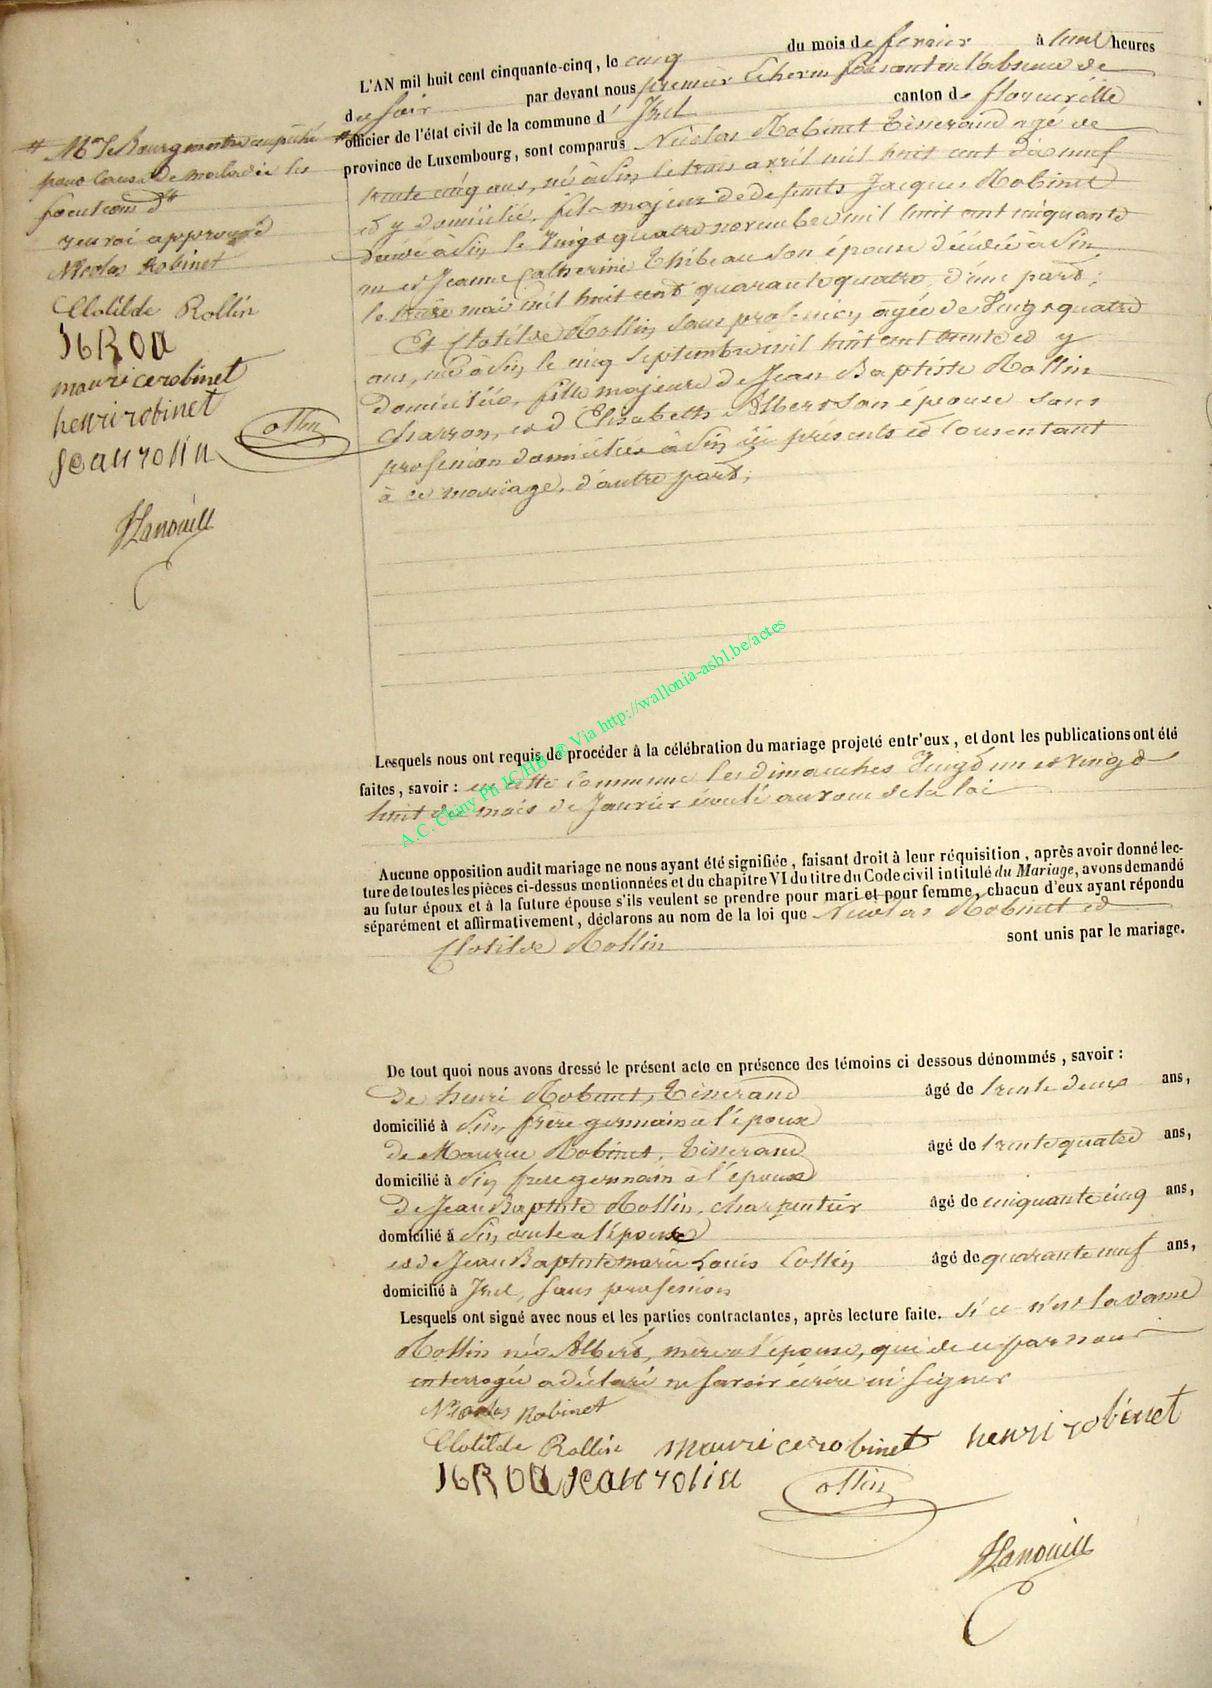 L'AN mil huit cent cinquante-cinq, le cinq du mois de fevrier à une heures
du soir par devant nous premier Echevin faisant en l'absence de
# officier de l'état civil de la commune d' Izel canton de florenville
province de Luxembourg, sont comparus Nicolas Robinet tisserand agé de
trente cinq ans, né à Pin le trois avril mil huit cent dix neuf
et y domicilié, fils majeur de défunts Jacques Robinet
décédé à Pin le vingt quatre novembre mil huit cent cinquante
un et Jeanne Catherine Thibeau son épouse décédée à Pin
le treize mai mil huit cent quarante quatre, d'une part;
Et Clotilde Rollin sans profession, agée de vingt quatre
ans, née à Pin le cinq septembre mil huit cent trente et y
domiciliée, fille majeure de Jean Baptiste Rollin
charron, et d'Elisabeth Albert son épouse sans
profession domiciliés à Pin, ici présents et consentant
à ce mariage, d'autre part;
# Mr le Bourgmestre empêché
pour cause de maladie les
fonctions dt
renvoi approuvé
Nicolas Robinet
Clotilde Rollin
JBROA
mauricerobinet
henrirobinet
Collin
jeanrolin
Hanouill
Lesquels nous ont requis de procéder à la célébration du mariage projeté entr'eux, et dont les publications ont été
faites, savoir: en cette commune les dimanches vingt un et vingt
huit du mois de Janvier écoulé au vœu de la loi
A.C. Chiny Ph JCHB ® Via http://wallonia-asbl.be/actes
Aucune opposition audit mariage ne nous ayant été signifiée, faisant droit à leur réquisition, après avoir donné lec-
ture de toutes les pièces ci-dessus mentionnées et du chapitre VI du titre du Code civil intitulé du Mariage, avons demandé
au futur époux et à la future épouse s'ils veulent se prendre pour mari et pour femme, chacun d'eux ayant répondu
séparément et affirmativement, déclarons au nom de la loi que Nicolas Robinet et
Clotilde Rollin sont unis par le mariage.
De tout quoi nous avons dressé le présent acte en présence des témoins ci dessous dénommés, savoir:
De henri Robinet, tisserand âgé de trente deux ans,
domicilié à Pin, frère germain à l'époux
de Maurice Robinet, tisserand âgé de trente quatre ans,
domicilié à Pin frere germain à l'époux
De Jean Baptiste Rollin, charpentier âgé de cinquante cinq ans,
domicilié à Pin, oncle à l'épouse
et de Jean Baptiste marie Louis Collin âgé de quarante neuf ans,
domicilié à Izel, sans profession
Lesquels ont signé avec nous et les parties contractantes, après lecture faite. si ce n'est la dame
Rollin née Albert, mère à l'épouse, qui de ce par nous
interrogée a déclaré ne savoir écrire ni signer
Nicolas Robinet
Clotilde Rollin mauricerobinet henrirobinet
JBROA jeanrolin Collin
Hanouill